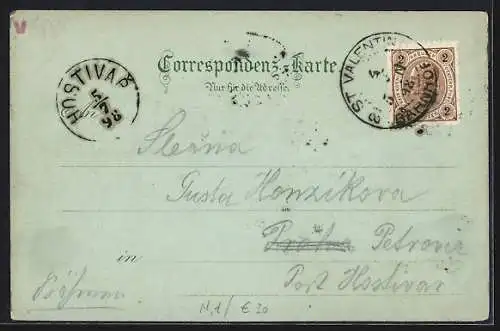 Correspondenz-Karte
Nur für die Adresse.
HOSTIVAŘ
5/7
98
ST VALENTIN
BAHNHOF
2 2
2 2
Slečna
Gusta Honzikova
in Praha Petrovic
Post Hostivar
Böhmen